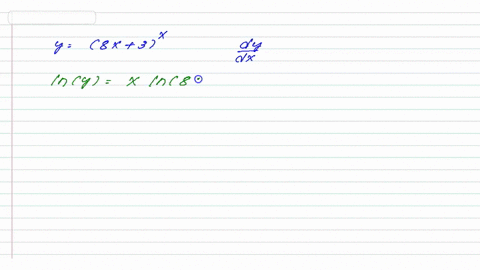 y = (8x+3)^x    dy/dx
ln(y) = x ln(8